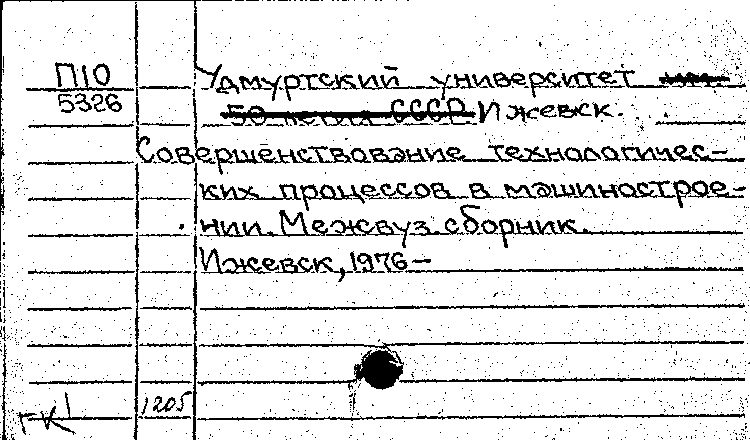 П10
5326
Удмуртский университет им.
50-летия СССР Ижевск.
Совершенствование технологичес-
ких процессов в машинострое-
нии. Межвуз. сборник.
Ижевск, 1976 —
ГК1
1205